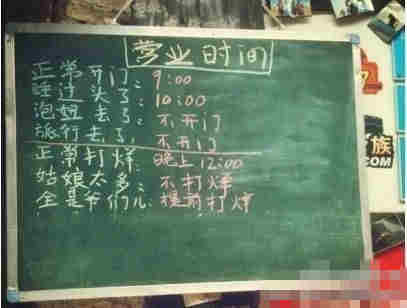 营业时间
正常开门：9:00
睡过头了：10:00
泡妞去了：不开门
旅行去了，不开门
正常打烊：晚上12:00
姑娘太多：不打烊
全是爷们儿：提前打烊
族
COM